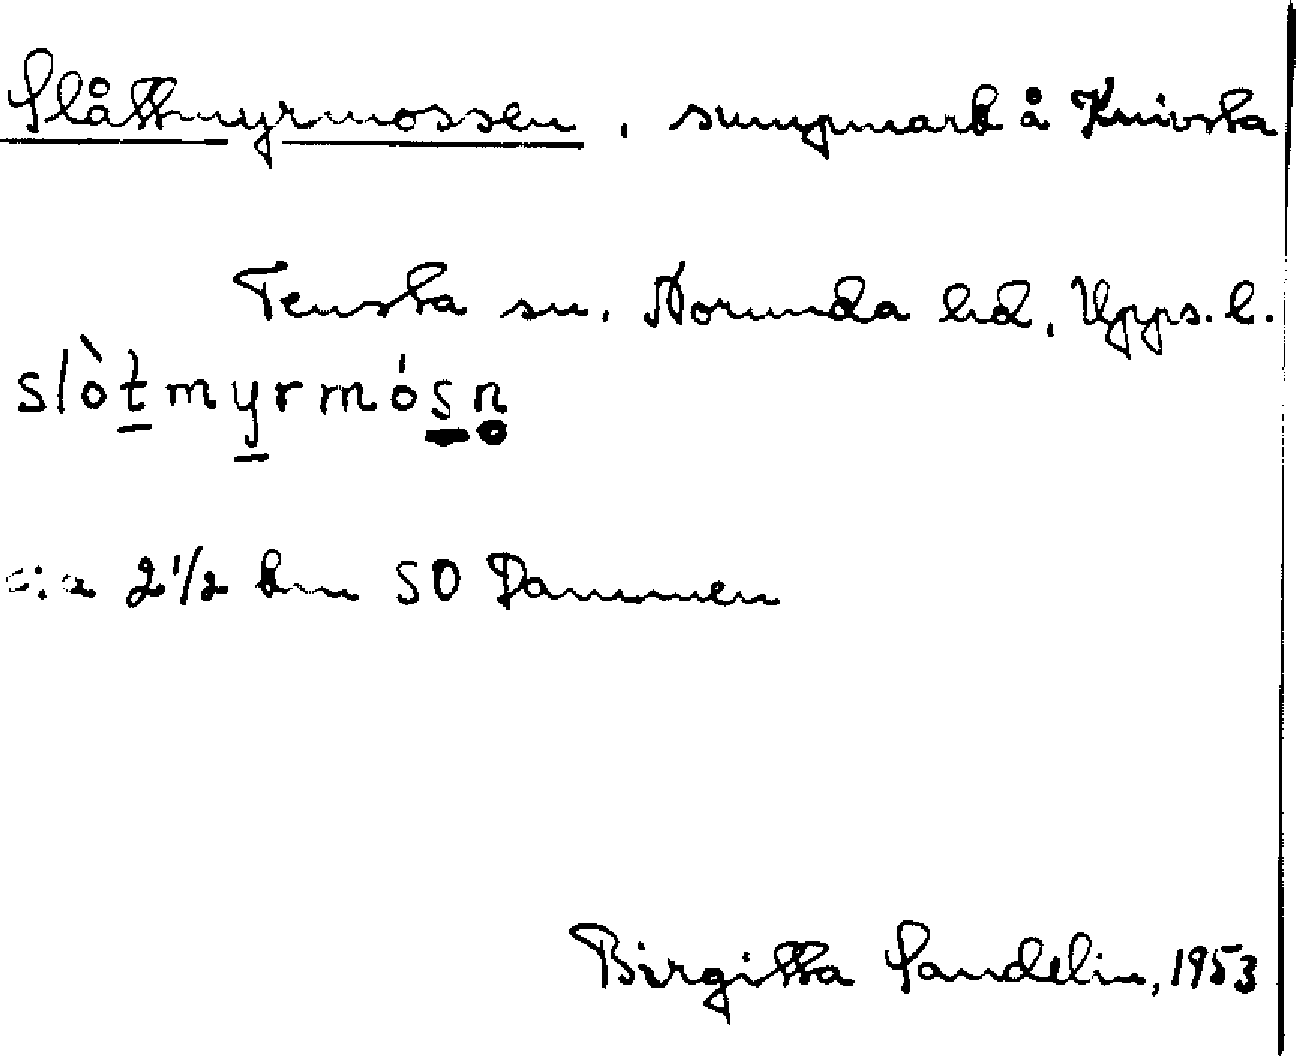 Slåttmyrmossen, sumpmark å Knivsta
Tensta sn. Norunda hd, Upps. l.
slòt̲my̲rmós̲n̥
c:a 2 1/2 km SO Dammen
Birgitta Sandelin, 1953